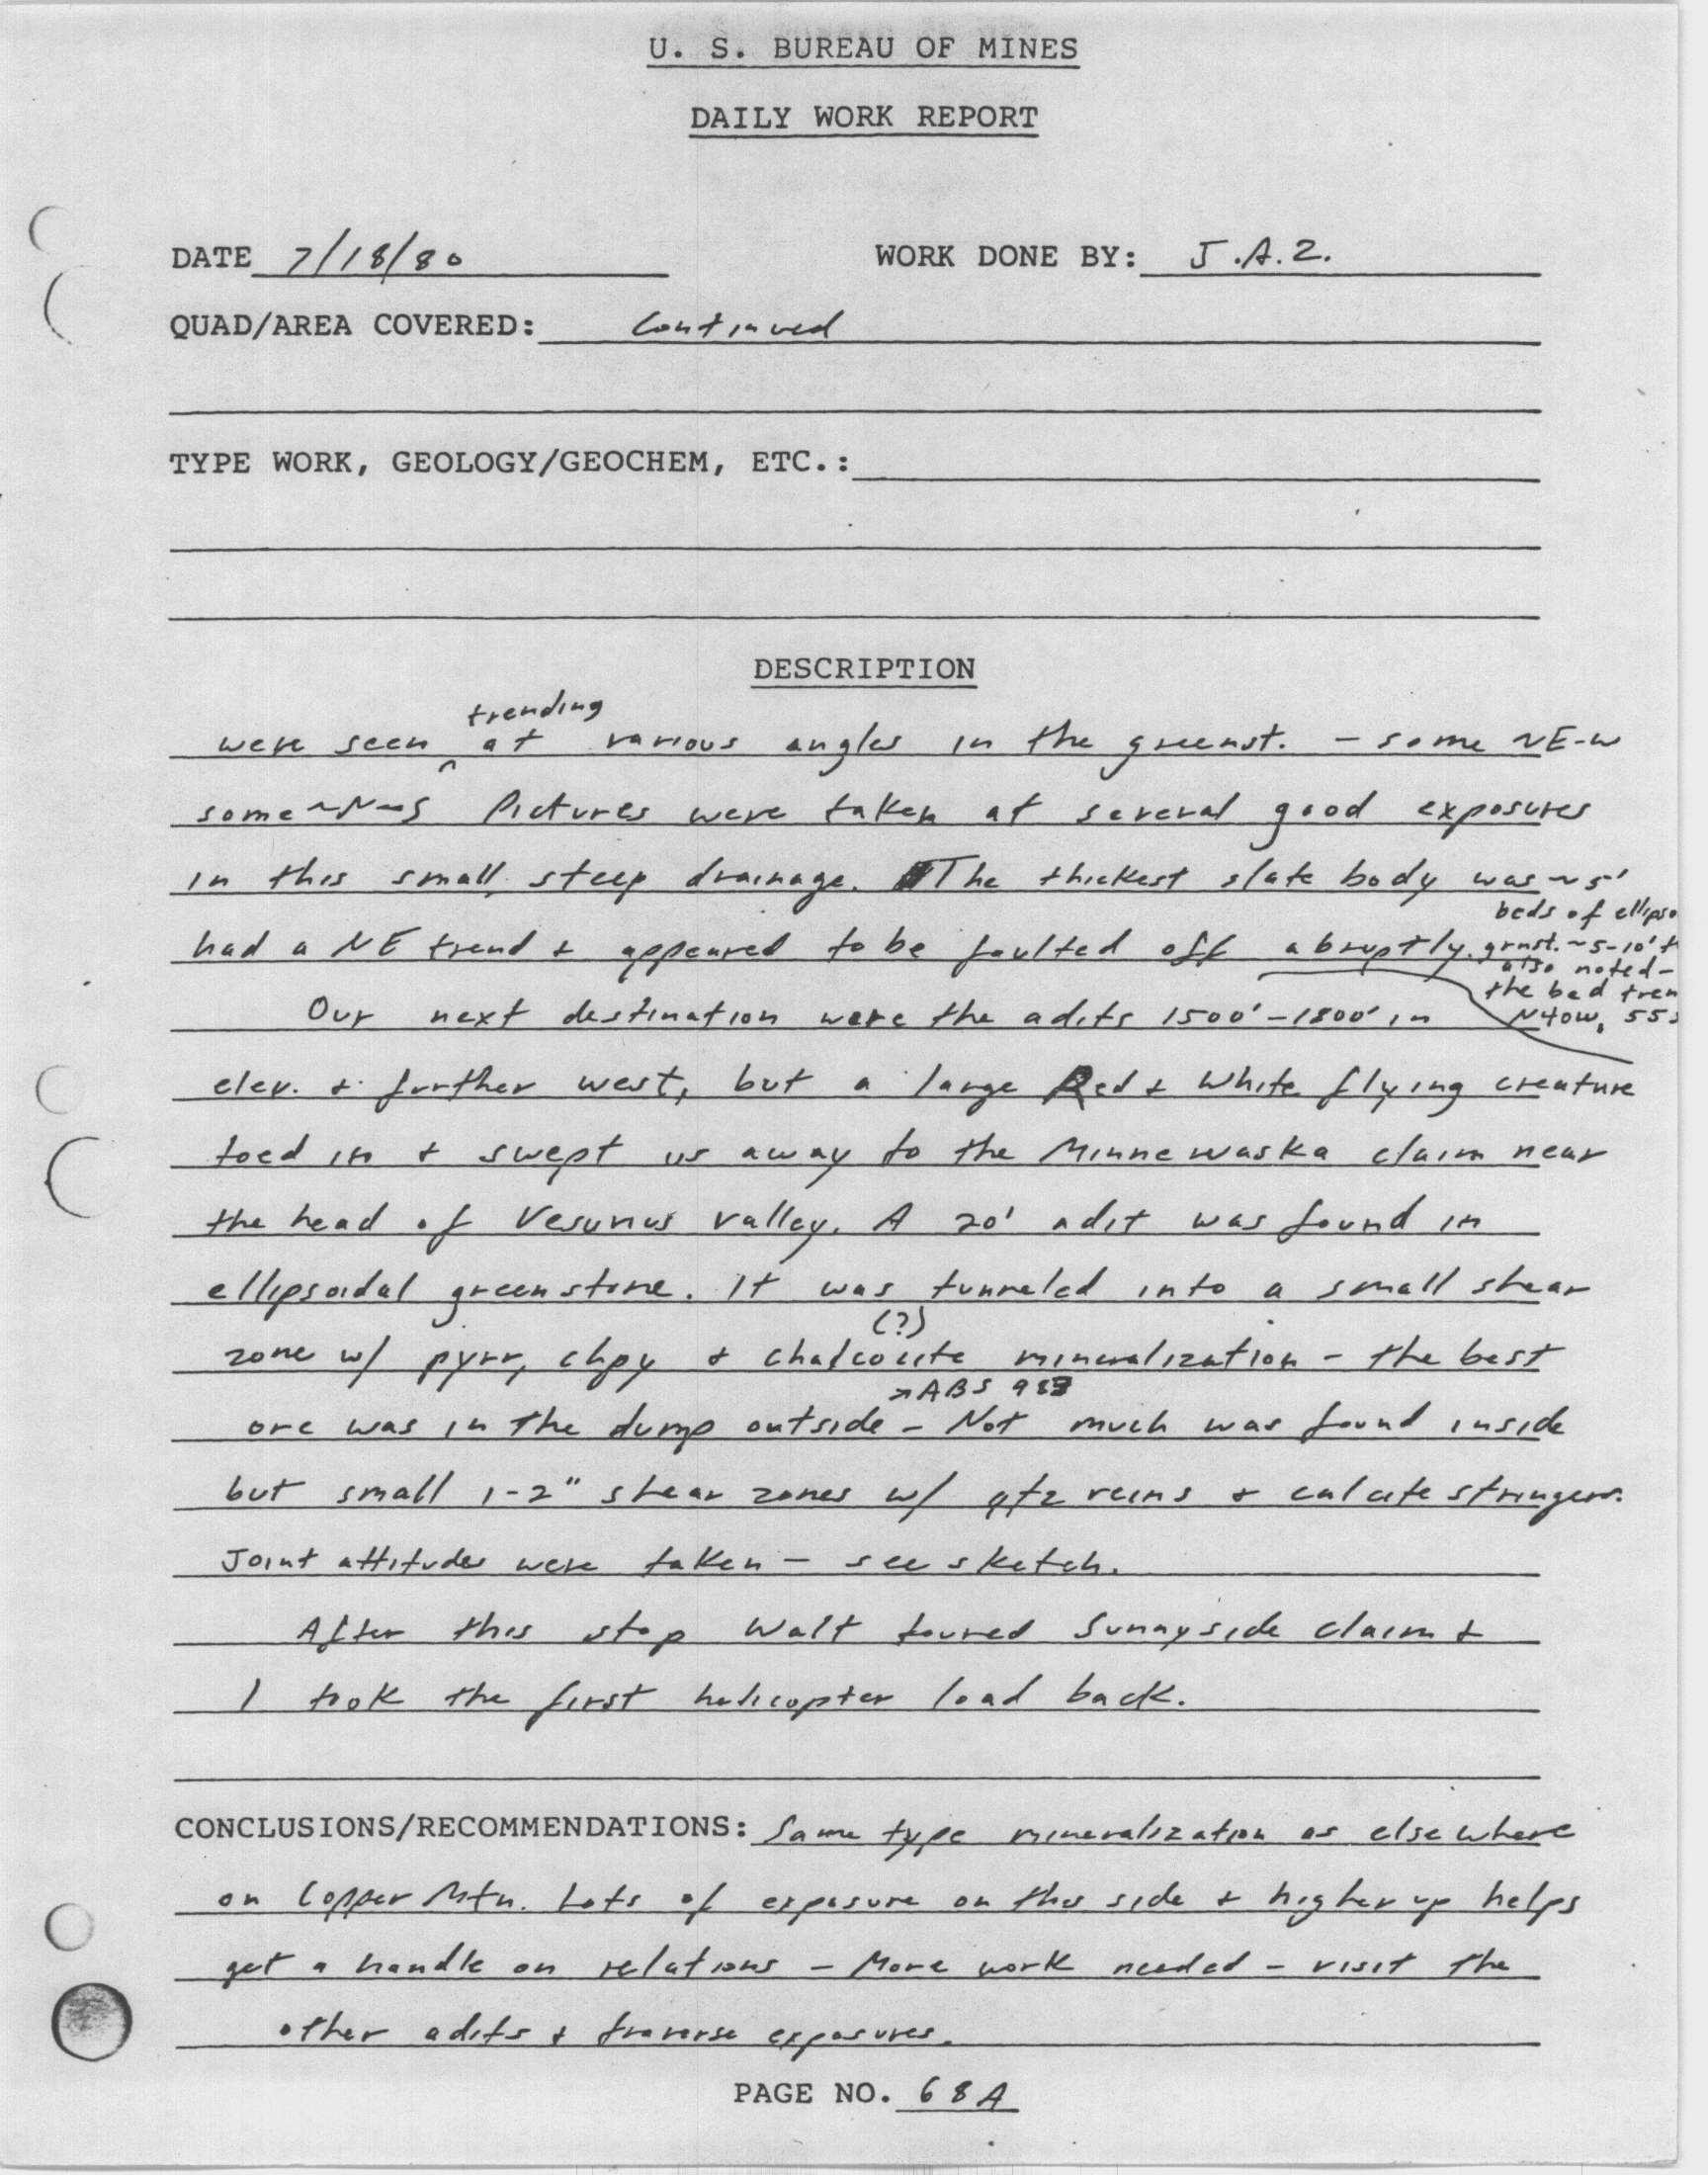 U. S. BUREAU OF MINES
DAILY WORK REPORT
DATE 7/18/80 WORK DONE BY: J.A.Z.
QUAD/AREA COVERED: Continued
TYPE WORK, GEOLOGY/GEOCHEM, ETC.:
DESCRIPTION
trending
were seen ^ at various angles in the greenst. - some ~E-W
some ~N-S Pictures were taken at several good exposures
in this small, steep drainage. The thickest slate body was ~5'
beds of ellipso
had a NE trend & appeared to be faulted off abruptly. grnst. ~5-10' t
also noted -
the bed tren
Our next destination were the adits 1500'-1800' in N40W, 55
elev. & further west, but a large Red & White flying creature
toed in & swept us away to the Minnewaska claim near
the head of Vesuvius valley. A 20' adit was found in
ellipsoidal greenstone. It was tunneled into a small shear
(?)
zone w/ pyrr, chpy & chalcocite mineralization - the best
→ABS 983
ore was in the dump outside - Not much was found inside
but small 1-2" shear zones w/ qtz veins & calcite stringers.
Joint attitudes were taken - see sketch.
After this stop Walt toured Sunnyside claim &
I took the first helicopter load back.
CONCLUSIONS/RECOMMENDATIONS: Same type mineralization as elsewhere
on Copper Mtn. Lots of exposure on this side & higher up helps
get a handle on relations - More work needed - visit the
other adits & traverse exposures.
PAGE NO. 68A